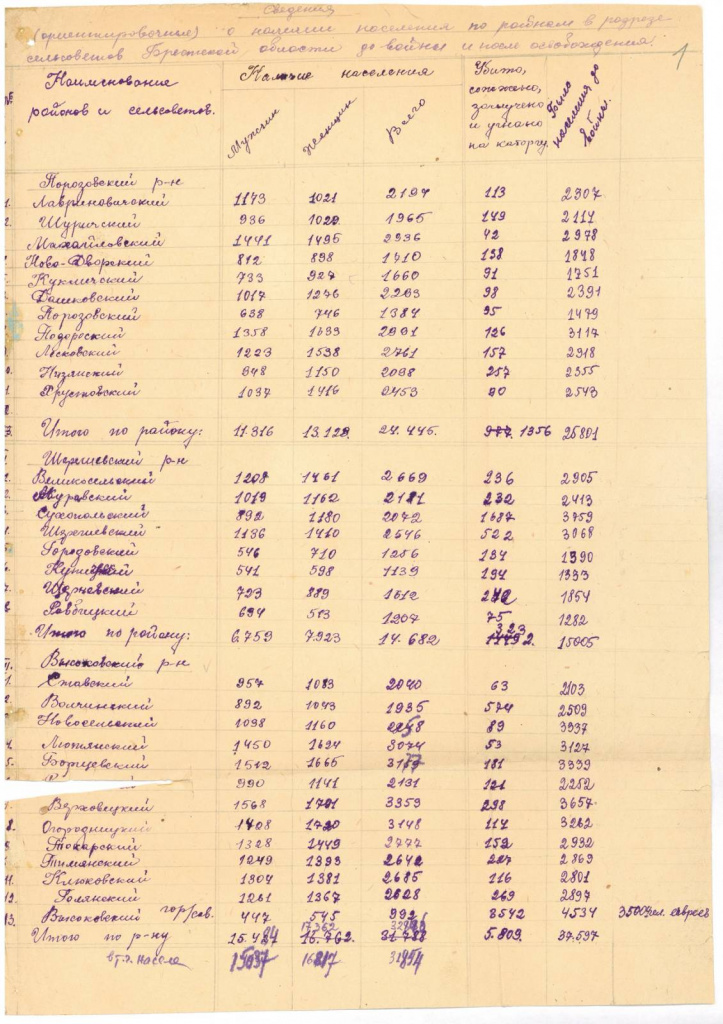 Сведения
(ориентировочные) о наличии населения по районам в разрезе
сельсоветов Брестской области до войны и после освобождения.
1
Наименование районов и сельсоветов. Наличие населения Мужчин Женщин Всего Убито, сожжено, замучено и угнано на каторгу Было населения до войны.
Порозовский р-н
Лавриновичский 1173 1021 2194 113 2307
Шуричский 936 1029 1965 149 2114
Михайловский 1441 1495 2936 42 2978
Ново-Дворский 812 898 1710 138 1848
Кукличский 733 927 1660 91 1751
1017 1276 2293 98 2391
Порозовский 638 746 1384 95 1479
Подоросский 1358 1633 2991 126 3117
Лысковский 1223 1538 2761 157 2918
948 1150 2098 257 2355
Хрустовский 1037 1416 2453 90 2543
Итого по району: 11.316 13.129 24.445. 977. 1356 25801
Шерешевский р-н
Великосельский 1208 1461 2669 236 2905
Муравский 1019 1162 2181 232 2413
Сухопольский 892 1180 2072 1687 3759
Шерешевский 1136 1410 2546 522 3068
Городовский 546 710 1256 134 1390
541 598 1139 194 1333
Щерчевский 723 889 1612 242 1854
694 513 1207 75 1282
Итого по району: 6.759 7.923 14.682 323 15005
Высоковский р-н
Ставский 957 1083 2040 63 2103
Волчинский 892 1043 1935 574 2509
Новосельский 1098 1160 2258 89 3937
1450 1624 3074 53 3127
1512 1665 3177 181 3339
990 1141 2131 121 2252
Верховицкий 1568 1791 3359 298 3657
8. Огородницкий 1408 1720 3148 114 3262
Токарский 1328 1449 2777 152 2932
1249 1393 2642 227 2869
11. Клюковский 1304 1381 2685 116 2801
12. 1261 1367 2628 269 2897
13. Высоковский гор/сов. 447 545 992 3542 4534 3500 чел. евреев
Итого по р-ну 15.424 17362 16.762. 31.788 5.809. 37.597
в т.ч. 15037 16817 31854